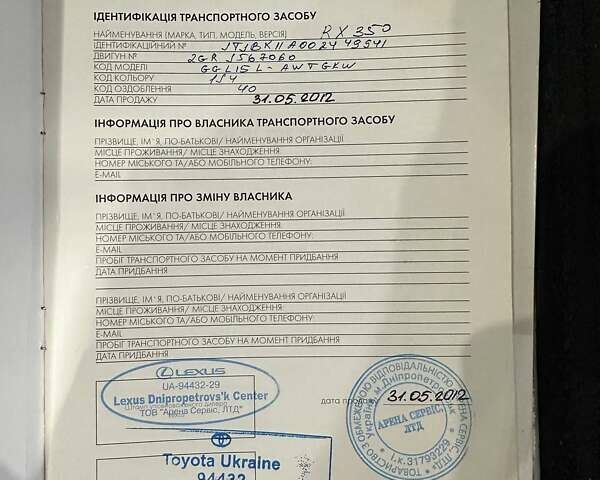 ІДЕНТИФІКАЦІЯ ТРАНСПОРТНОГО ЗАСОБУ
НАЙМЕНУВАННЯ (МАРКА, ТИП, МОДЕЛЬ, ВЕРСІЯ) RX 350
ІДЕНТИФІКАЦІЙНИЙ № JTJBK11A002449541
ДВИГУН № 2GR J567060
КОД МОДЕЛІ GGL15L-AWTGKW
КОД КОЛЬОРУ 1J4
КОД ОЗДОБЛЕННЯ 40
ДАТА ПРОДАЖУ 31.05.2012
ІНФОРМАЦІЯ ПРО ВЛАСНИКА ТРАНСПОРТНОГО ЗАСОБУ
ПРІЗВИЩЕ, ІМ'Я, ПО-БАТЬКОВІ/ НАЙМЕНУВАННЯ ОРГАНІЗАЦІЇ
МІСЦЕ ПРОЖИВАННЯ/ МІСЦЕ ЗНАХОДЖЕННЯ
НОМЕР МІСЬКОГО ТА/АБО МОБІЛЬНОГО ТЕЛЕФОНУ:
E-MAIL
ІНФОРМАЦІЯ ПРО ЗМІНУ ВЛАСНИКА
ПРІЗВИЩЕ, ІМ'Я, ПО-БАТЬКОВІ/ НАЙМЕНУВАННЯ ОРГАНІЗАЦІЇ
МІСЦЕ ПРОЖИВАННЯ/ МІСЦЕ ЗНАХОДЖЕННЯ
НОМЕР МІСЬКОГО ТА/АБО МОБІЛЬНОГО ТЕЛЕФОНУ:
E-MAIL
ПРОБІГ ТРАНСПОРТНОГО ЗАСОБУ НА МОМЕНТ ПРИДБАННЯ
ДАТА ПРИДБАННЯ
ПРІЗВИЩЕ, ІМ'Я, ПО-БАТЬКОВІ/ НАЙМЕНУВАННЯ ОРГАНІЗАЦІЇ
МІСЦЕ ПРОЖИВАННЯ/ МІСЦЕ ЗНАХОДЖЕННЯ
НОМЕР МІСЬКОГО ТА/АБО МОБІЛЬНОГО ТЕЛЕФОНУ:
E-MAIL
ПРОБІГ ТРАНСПОРТНОГО ЗАСОБУ НА МОМЕНТ ПРИДБАННЯ
ДАТА ПРИДБАННЯ
LEXUS
UA-94432-29
Lexus Dnipropetrovs'k Center
ТОВ "Арена Сервіс, ЛТД"
дата продажу 31.05.2012
ТОВАРИСТВО З ОБМЕЖЕНОЮ ВІДПОВІДАЛЬНІСТЮ "АРЕНА СЕРВІС, ЛТД"
Україна м.Дніпропетровськ
АРЕНА СЕРВІС,
ЛТД
і.к.31793229
Toyota Ukraine
94432